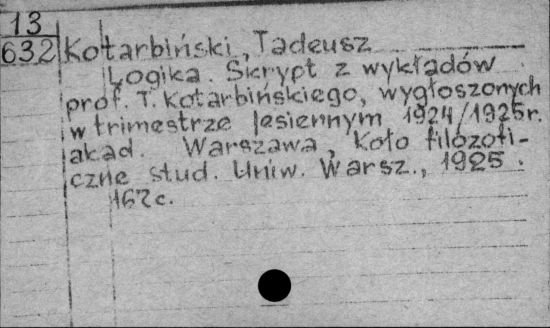 13
632 Kotarbiński, Tadeusz
Logika. Skrypt z wykładów
prof. T. Kotarbińskiego, wygłoszonych
w trimestrze jesiennym 1924/1925r.
akad. Warszawa, Koło filozofi-
czne stud. Uniw. Warsz., 1925.
167 c.